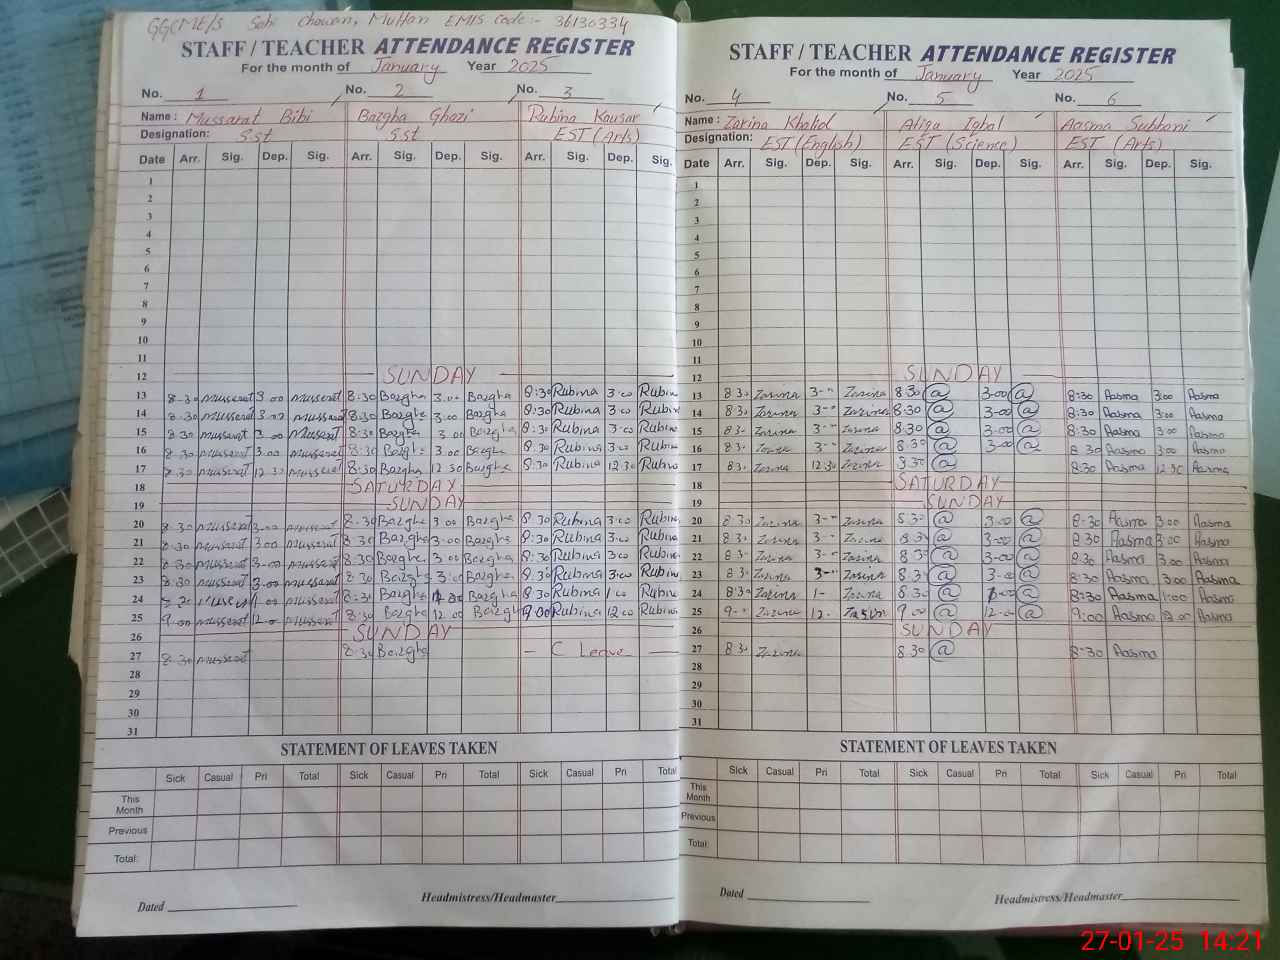 GGCMES Sahi Chowan, Multan EMIS Code:- 36130334
STAFF / TEACHER ATTENDANCE REGISTER
For the month of January Year 2025
No. 1 No. 2 No. 3
Name : Mussarat Bibi Bazgha Ghazi Rubina Kousar
Designation: S.st S.st EST (Arts)
Date Arr. Sig. Dep. Sig. Arr. Sig. Dep. Sig. Arr. Sig. Dep. Sig.
1
2
3
4
5
6
7
8
9
10
11
12 SUNDAY
13 8-30 Mussarat 3 00 Mussarat 8:30 Bazgha 3.00 Bazgha 8:30 Rubina 3:00 Rubina
14 8-30 Mussarat 3 00 Mussarat 8:30 Bazgha 3.00 Bazgha 8:30 Rubina 3:00 Rubin
15 8:30 Mussarat 3 00 Mussarat 8:30 Bazgha 3 00 Bazgha 8:30 Rubina 3:00 Rubin
16 8.30 Mussarat 3 00 Mussarat 8:30 Bazgha 3.00 Bazgha 8:30 Rubina 3:00 Rubin
17 8.30 Mussarat 12 30 Mussarat 8:30 Bazgha 12 30 Bazgha 8:30 Rubina 12 30 Rubin
18 SATURDAY
19 SUNDAY
20 8:30 Mussarat 3-00 Mussarat 8:30 Bazgha 3.00 Bazgha 8:30 Rubina 3:00 Rubin
21 8:30 Mussarat 3.00 Mussarat 8:30 Bazgha 3.00 Bazgha 8:30 Rubina 3:00 Rubin
22 8:30 Mussarat 3-00 Mussarat 8:30 Bazgha 3 00 Bazgha 8:30 Rubina 3:00 Rubin
23 8:30 Mussarat 3.00 Mussarat 8:30 Bazgha 3:00 Bazgha 8:30 Rubina 3:00 Rubin
24 Mussarat 1.00 Mussarat 8:30 Bazgha Bazgha 8:30 Rubina 1:00 Rubina
25 9.00 Mussarat 12-0 Mussarat 8:30 Bazgha 12.00 Bazgha 9:00 Rubina 12:00 Rubina
26 SUNDAY
27 8:30 Mussarat 8:30 Bazgha - C Leave -
28
29
30
31
STATEMENT OF LEAVES TAKEN
Sick Casual Pri Total Sick Casual Pri Total Sick Casual Pri Total
This Month
Previous
Total:
Dated Headmistress/Headmaster
STAFF / TEACHER ATTENDANCE REGISTER
For the month of January Year 2025
No. 4 No. 5 No. 6
Name : Zarina Khalid Atiqa Iqbal Aasma Subhani
Designation: EST (English) EST (Science) EST (Arts)
Date Arr. Sig. Dep. Sig. Arr. Sig. Dep. Sig. Arr. Sig. Dep. Sig.
1
2
3
4
5
6
7
8
9
10
11
12 SUNDAY
13 8 30 Zarina 3-00 Zarina 8 30 @ 3-00 @ 8:30 Aasma 3:00 Aasma
14 8 30 Zarina 3-00 Zarina 8:30 @ 3-00 @ 8:30 Aasma 3:00 Aasma
15 8 30 Zarina 3-00 Zarina 8:30 @ 3-00 @ 8:30 Aasma 3:00 Aasma
16 8 30 Zarina 3-00 Zarina 8:30 @ 3-00 @ 8 30 Aasma 3:00 Aasma
17 8 30 Zarina 12:30 Zarina 8 30 @ 8:30 Aasma 12 30 Aasma
18 SATURDAY
19 SUNDAY
20 8 30 Zarina 3-00 Zarina 8 30 @ 3-00 @ 8:30 Aasma 3:00 Aasma
21 8 30 Zarina 3-00 Zarina 8 30 @ 3-00 @ 8 30 Aasma 3:00 Aasma
22 8 30 Zarina 3-00 Zarina 8 30 @ 3-00 @ 8:30 Aasma 3:00 Aasma
23 8 30 Zarina 3-00 Zarina 8 30 @ 3-00 @ 8:30 Aasma 3:00 Aasma
24 8:30 Zarina 1- Zarina 8 30 @ 1-00 @ 8:30 Aasma 1:00 Aasma
25 9-00 Zarina 12- Zarina 9 00 @ 12-00 @ 9:00 Aasma 12:00 Aasma
26 SUNDAY
27 8 30 Zarina 8 30 @ 8:30 Aasma
28
29
30
31
STATEMENT OF LEAVES TAKEN
Sick Casual Pri Total Sick Casual Pri Total Sick Casual Pri Total
This Month
Previous
Total:
Dated Headmistress/Headmaster
27-01-25 14:21